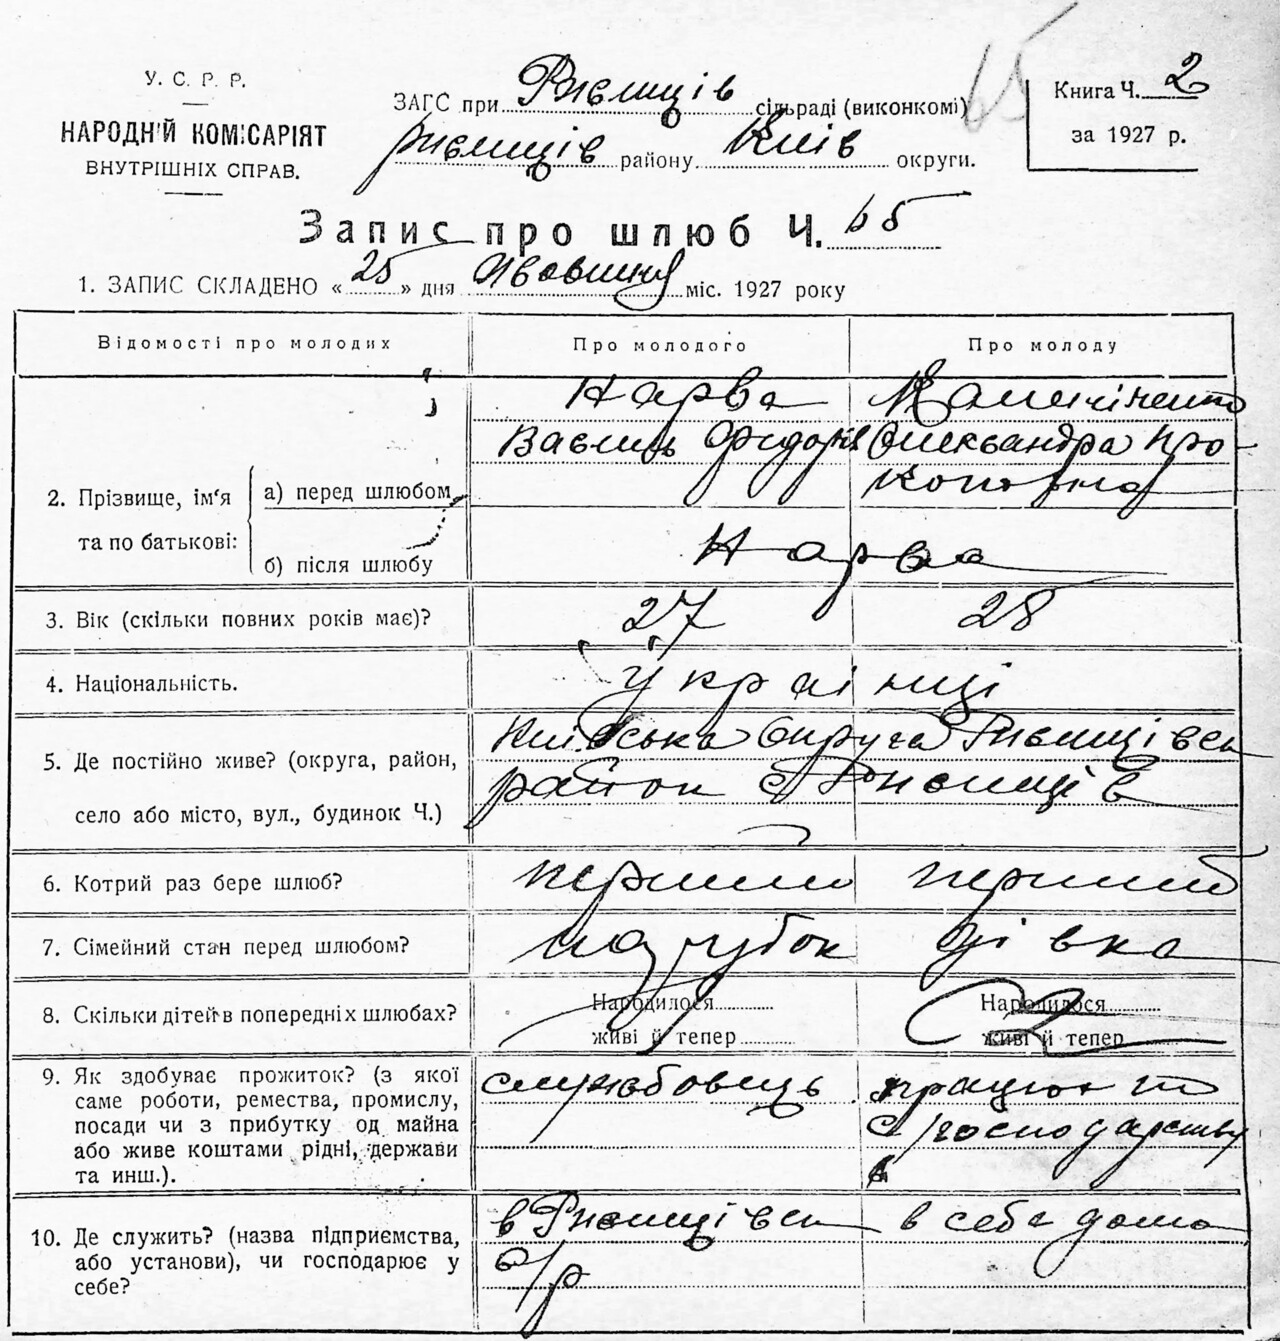 У. С. Р. Р.
НАРОДНІЙ КОМІСАРІЯТ
ВНУТРІШНІХ СПРАВ.
ЗАГС при Ржищів сільраді (виконкомі)
Ржищів району Київ округи.
65
Книга Ч. 2
за 1927 р.
Запис про шлюб Ч. 65
1. ЗАПИС СКЛАДЕНО «25» дня міс. 1927 року
Відомості про молодих Про молодого Про молоду
2. Прізвище, ім'я та по батькові:
а) перед шлюбом
Нарва
Василь Федор
Олександра Про-
коповна
б) після шлюбу
Нарва
3. Вік (скільки повних років має)? 27 28
4. Національність. українці
5. Де постійно живе? (округа, район,
село або місто, вул., будинок Ч.)
Київська Округа Ржищівськ
район с Ржищів
6. Котрий раз бере шлюб? перший перший
7. Сімейний стан перед шлюбом? парубок дівка
8. Скільки дітей в попередніх шлюбах?
Народилося
живі й тепер
Народилося
живі й тепер
9. Як здобуває прожиток? (з якої
саме роботи, ремества, промислу,
посади чи з прибутку од майна
або живе коштами рідні, держави
та инш.).
службовець
працює в
с/господарству
10. Де служить? (назва підприємства,
або установи), чи господарює у
себе?
в Ржищівськ
с/р
в себе дома